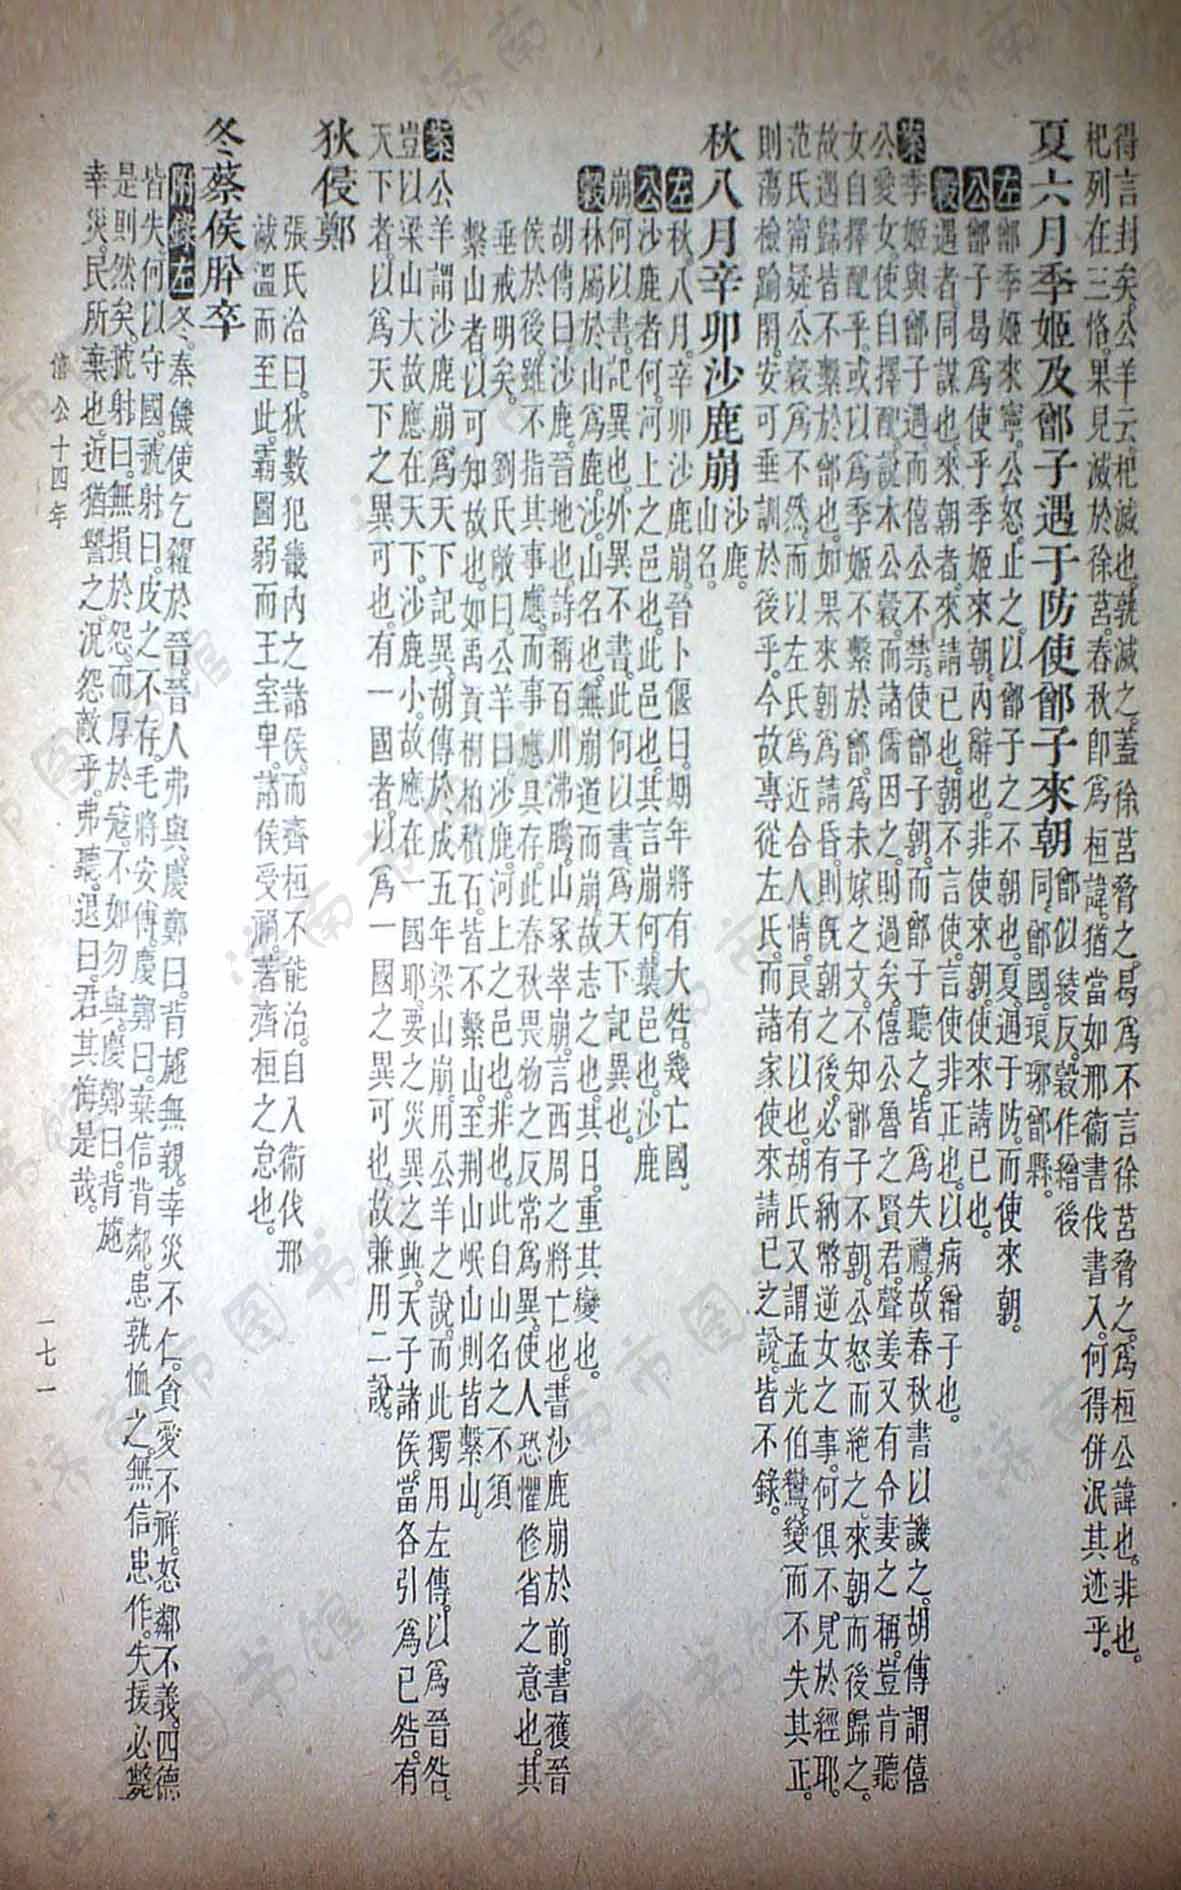 得言封矣。公羊云。杞滅也。孰滅之。蓋徐莒脅之。曷爲不言徐莒脅之。爲桓公諱也。非也。
杞列在三恪。果見滅於徐莒。春秋卽爲桓諱。猶當如邢衞書伐書入。何得併泯其迹乎。
夏六月季姬及鄫子遇于防使鄫子來朝鄫似綾反。穀作繒。後同。鄫國。琅琊鄫縣。
左鄫季姬來寧。公怒。止之。以鄫子之不朝也。夏。遇于防。而使來朝。
公鄫子曷爲使乎季姬來朝。內辭也。非使來朝。使來請已也。
穀遇者。同謀也。來朝者。來請已也。朝不言使。言使非正也。以病繒子也。
案季姬與鄫子遇。而僖公不禁。使鄫子朝。而鄫子聽之。皆爲失禮。故春秋書以譏之。胡傳謂僖
公愛女。使自擇配。說本公穀。而諸儒因之。則過矣。僖公魯之賢君。聲姜又有令妻之稱。豈肯聽
女自擇配乎。或以爲季姬不繫於鄫。爲未嫁之文。不知鄫子不朝。公怒而絕之。來朝而後歸之。
故遇歸皆不繫於鄫也。如果來朝爲請昏。則旣朝之後。必有納幣逆女之事。何俱不見於經耶。
范氏甯疑公穀爲不然。而以左氏爲近合人情。良有以也。胡氏又謂孟光伯鸞。變而不失其正。
則蕩檢踰閑。安可垂訓於後乎。今故專從左氏。而諸家使來請已之說。皆不錄。
秋八月辛卯沙鹿崩沙鹿。山名。
左秋。八月。辛卯沙鹿崩。晉卜偃曰。期年將有大咎。幾亡國。
公沙鹿者何。河上之邑也。此邑也。其言崩何。襲邑也。沙鹿
崩何以書。記異也。外異不書。此何以書。爲天下記異也。
穀林屬於山爲鹿。沙。山名也。無崩道而崩。故志之也。其日。重其變也。
胡傳曰沙鹿。晉地也。詩稱百川沸騰。山冢崒崩。言西周之將亡也。書沙鹿崩於前。書獲晉
侯於後。雖不指其事應。而事應具存。此春秋畏物之反常爲異。使人恐懼修省之意也。其
垂戒明矣。劉氏敞曰。公羊曰。沙鹿。河上之邑也。非也。此自山名之。不須
繫山者。以可知故也。如禹貢桐柏積石。皆不繫山。至荆山岷山則皆繫山。
案公羊謂沙鹿崩。爲天下記異。胡傳於成五年梁山崩。用公羊之說。而此獨用左傳。以爲晉咎。
豈以梁山大故應在天下。沙鹿小。故應在一國耶。要之災異之典。天子諸侯。當各引爲已咎。有
天下者。以爲天下之異可也。有一國者。以爲一國之異可也。故兼用二說。
狄侵鄭
張氏洽曰。狄數犯畿內之諸侯。而齊桓不能治。自入衞伐邢
滅溫而至此。霸圖弱而王室卑。諸侯受禍。著齊桓之怠也。
冬蔡侯肸卒
附錄左冬。秦饑。使乞糴於晉。晉人弗與。慶鄭曰。背施無親。幸災不仁。貪愛不祥。怒鄰不義。四德
皆失。何以守國。虢射曰。皮之不存。毛將安傅。慶鄭曰。棄信背鄰。患孰恤之。無信患作。失援必斃。
是則然矣。虢射曰。無損於怨。而厚於寇。不如勿與。慶鄭曰。背施
幸災。民所棄也。近猶讐之。況怨敵乎。弗聽。退曰。君其悔是哉。
僖公十四年
一七一